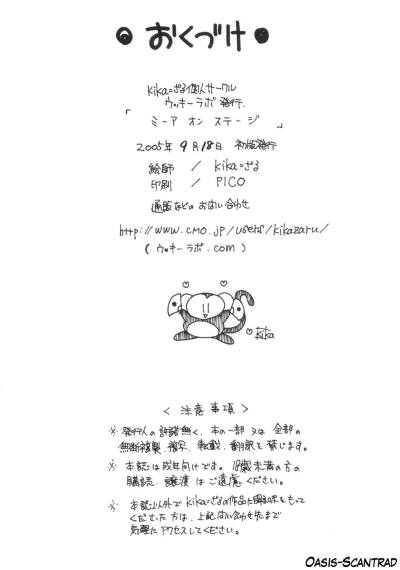 おくづけ
kika=ざる個人サークル
ウッキーラボ 発行
「ミーア オン ステージ」
2005年 9月18日 初版発行
絵師 / kika=ざる
印刷 / PICO
通販などの お問い合わせ
http://www.cmo.jp/users/kikazaru/
(ウッキーラボ.com)
kika
< 注意事項 >
※ 発行人の許諾無く、本の一部 又は 全部の
無断複製、複写、転載、翻訳を 禁じます。
※ 本誌は成年向けです。18歳未満の方の
購読、譲渡 はご遠慮 ください。
※ 本誌以外で kika=ざるの作品に興味をもって
くださった 方は、上記お問い合わせ先まで
気軽に アクセスしてください。
Oasis-Scantrad